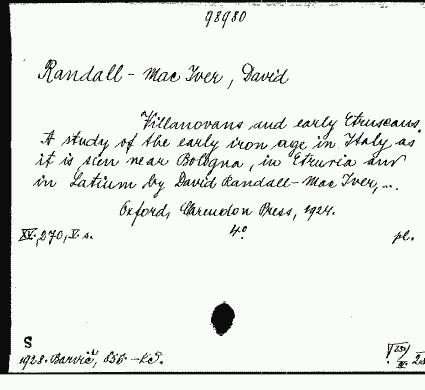 98980
Randall - Mac Iver, David
Villanovans and early Etruscans.
A study of the early iron age in Italy as
it is seen near Bologna, in Etruria and
in Latium by David Randall-Mac Iver, ...
Oxford, Clarendon Press, 1924.
XV, 270, V. s. 4° pl.
S
1928. Barvič, 856.-Kč.